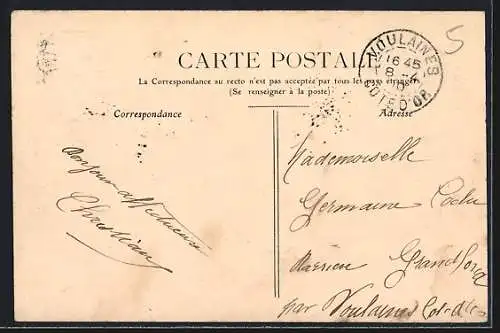 5
CARTE POSTALE
VOULAINES
16 45
8 -4
COTE D'OR
La Correspondance au recto n'est pas acceptée par tous les pays étrangers
(Se renseigner à la poste)
Correspondance
Adresse
Bonjour affectueux
Christian
Mademoiselle
Germaine
par Voulaines Cote d'Or